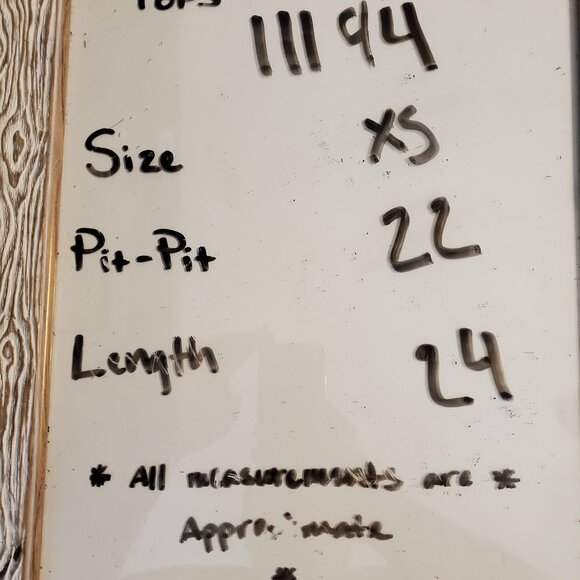 TOPS
111 94
Size XS
Pit-Pit 22
Length 24
* All measurements are *
Approximate
*